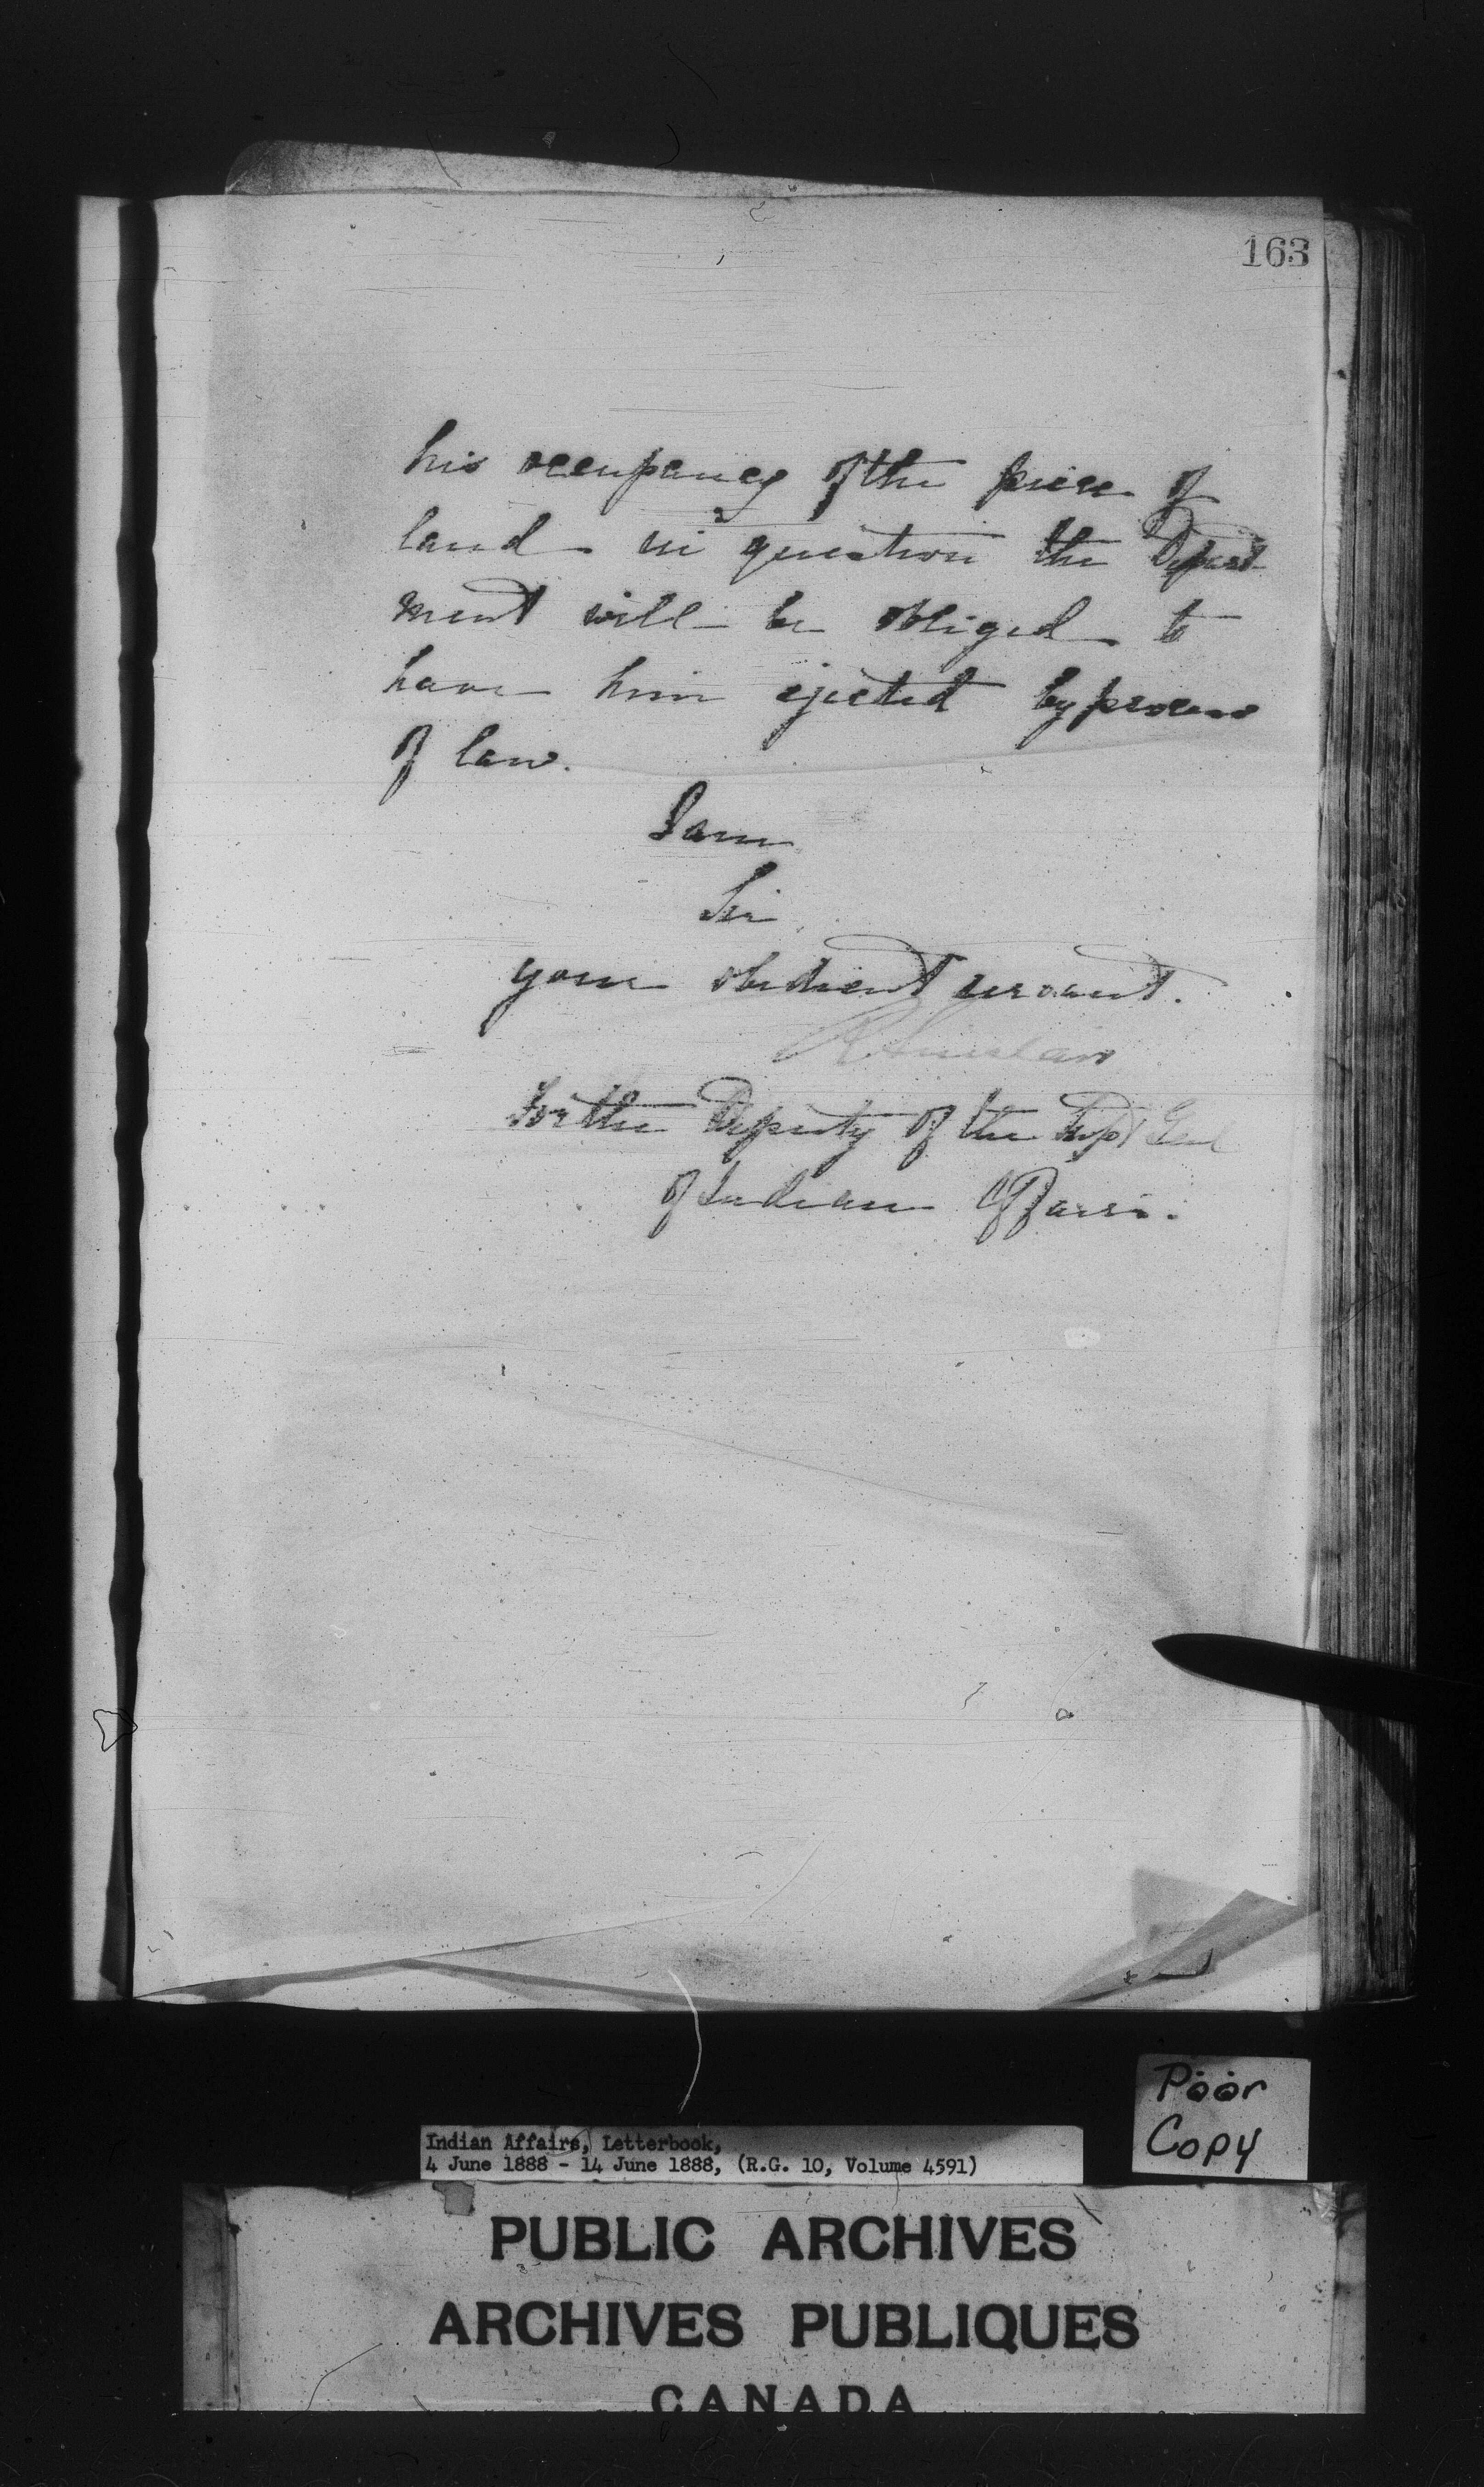 163
his occupancy of the piece of
land in question the Depart
ment will be obliged to
have him ejected by process
of law.
I am
Sir
your obedient servant.
R Sinclair
For the Deputy of the Supt Genl
of Indian Affairs.
Poor
Copy
Indian Affairs, Letterbook,
4 June 1888 - 14 June 1888, (R.G. 10, Volume 4591)
PUBLIC ARCHIVES
ARCHIVES PUBLIQUES
CANADA